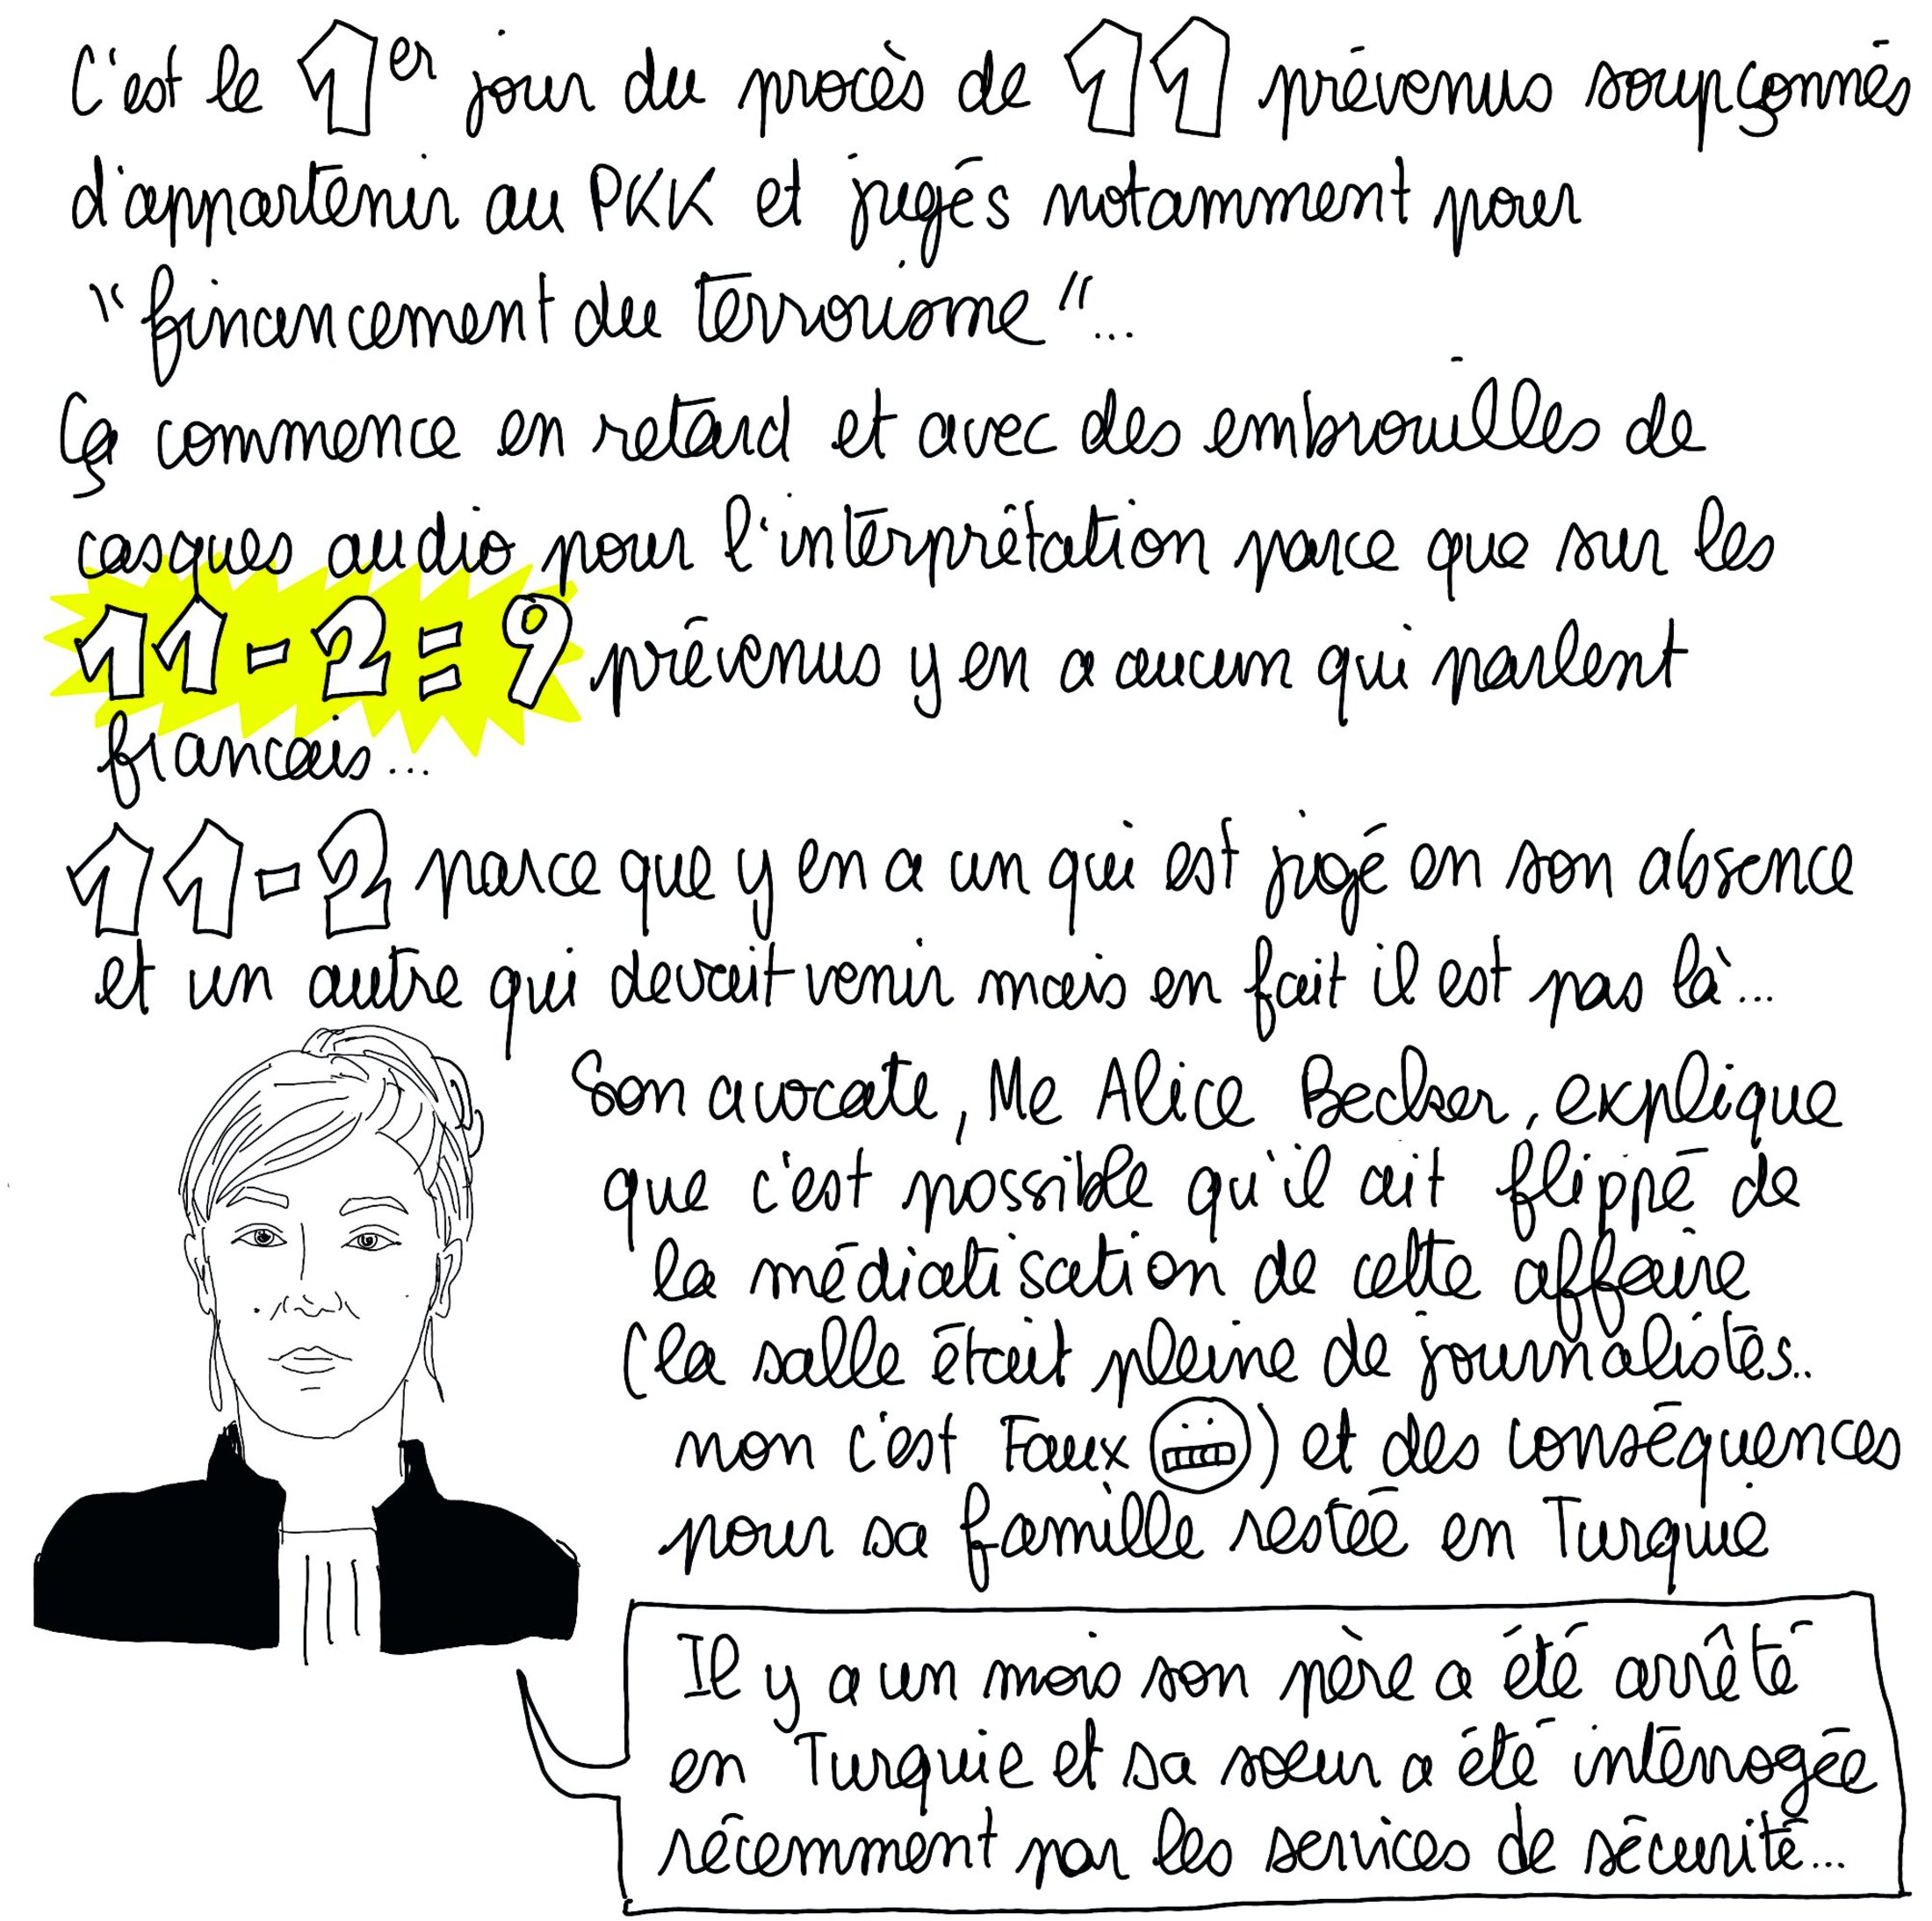 C'est le 1er jour du procès de 11 prévenus soupçonnés
d'appartenir au PKK et jugés notamment pour
"financement du terrorisme"...
Ça commence en retard et avec des embrouilles de
casques audio pour l'interprétation parce que sur les
11-2=9 prévenus y en a aucun qui parlent
francais...
11-2 parce que y en a un qui est jugé en son absence
et un autre qui devait venir mais en fait il est pas là...
Son avocate, Me Alice Becker, explique
que c'est possible qu'il ait flippé de
la médiatisation de cette affaire
(la salle était pleine de journalistes..
non c'est Faux) et des conséquences
pour sa famille restée en Turquie
Il y a un mois son père a été arrêté
en Turquie et sa sœur a été interrogée
récemment par les services de sécurité...